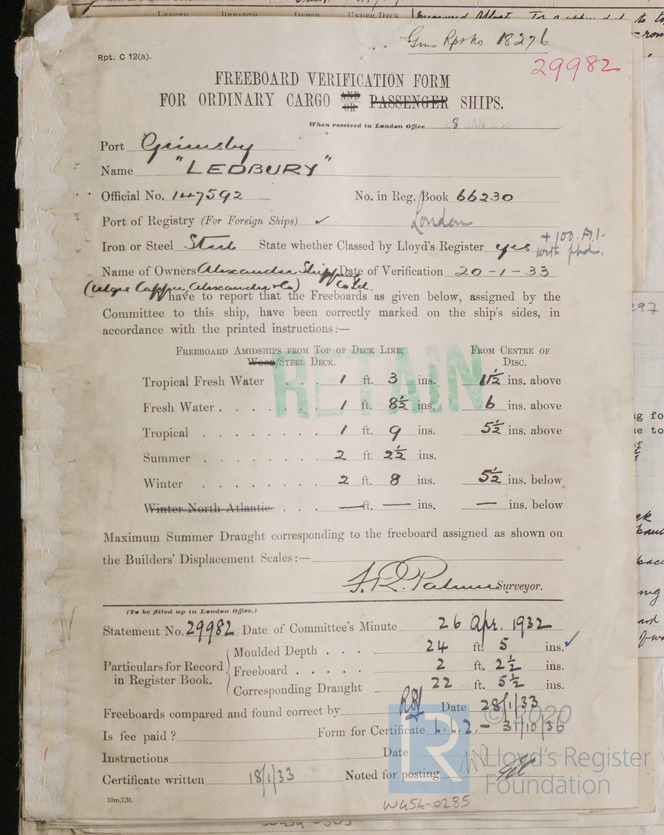 LENGTH BREADTH DEPTH UNDER DECK
Gms Rpt No 18276
Rpt. C 12(a).
29982
FREEBOARD VERIFICATION FORM
FOR ORDINARY CARGO AND OR PASSENGER SHIPS.
When received in London Office 28 JAN
Port Grimsby
Name "LEDBURY"
Official No. 147592 No. in Reg. Book 66230
Port of Registry (For Foreign Ships) ✓ London
Iron or Steel Steel State whether Classed by Lloyd's Register yes +100.A.1. with fbd.
Name of Owners Alexander Shipping Co Ld. Date of Verification 20-1-33
(Mgrs Capper, Alexander & Co) have to report that the Freeboards as given below, assigned by the
Committee to this ship, have been correctly marked on the ship's sides, in
accordance with the printed instructions:—
FREEBOARD AMIDSHIPS FROM TOP OF DECK LINE, FROM CENTRE OF
Wood/STEEL DECK. DISC.
RETAIN
Tropical Fresh Water 1 ft. 3 ins. 11½ ins. above
Fresh Water 1 ft. 8½ ins. 6 ins. above
Tropical 1 ft. 9 ins. 5½ ins. above
Summer 2 ft. 2½ ins.
Winter 2 ft. 8 ins. 5½ ins. below
Winter North Atlantic — ft. — ins. — ins. below
Maximum Summer Draught corresponding to the freeboard assigned as shown on
the Builders' Displacement Scales:—
Surveyor.
(To be filled up in London Office.)
Statement No. 29982 Date of Committee's Minute 26 Apr. 1932
Particulars for Record in Register Book.
Moulded Depth 24 ft. 5 ins. ✓
Freeboard 2 ft. 2½ ins.
Corresponding Draught 22 ft. 5½ ins.
Freeboards compared and found correct by Date 28/1/33
Is fee paid? Form for Certificate L.L.2. - 31/10/36
Instructions Date
Certificate written 18/1/33 Noted for posting
10m,7,31.
W454-0285
© 2020
Lloyd's Register
Foundation
297